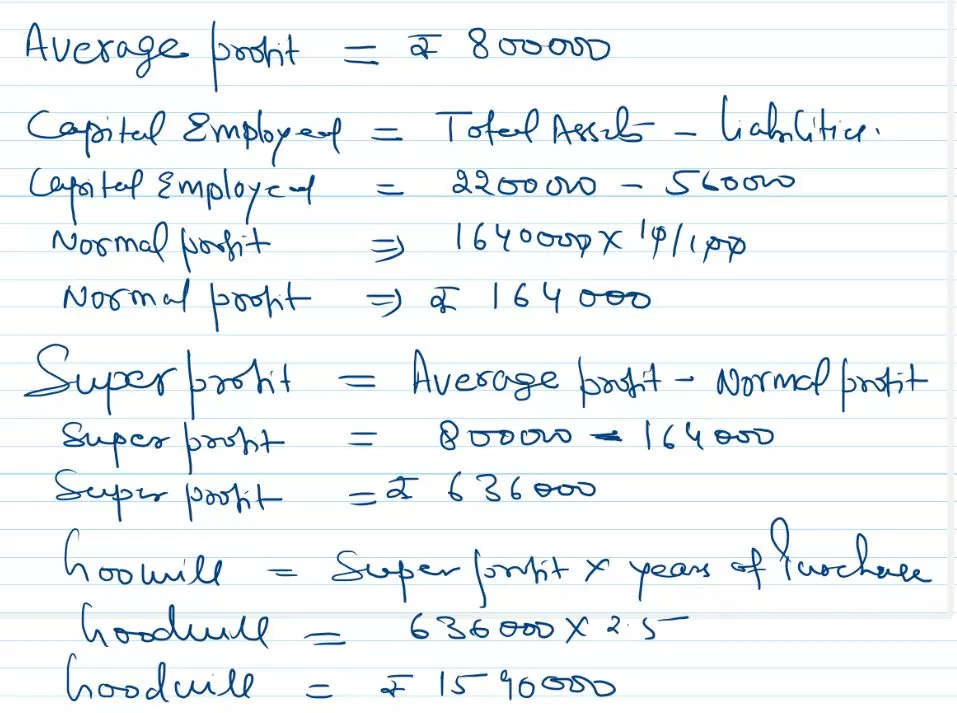 Average profit = ₹ 800000
Capital Employed = Total Assets - Liabilities.
Capital Employed = 2200000 - 560000
Normal profit ⇒ 1640000 X 10/100
Normal profit ⇒ ₹ 164000
Super profit = Average profit - Normal profit
Super profit = 800000 - 164000
Super profit = ₹ 636000
Goowill = Super profit X years of Purchase
Goodwill = 636000 X 2.5
Goodwill = ₹ 1590000